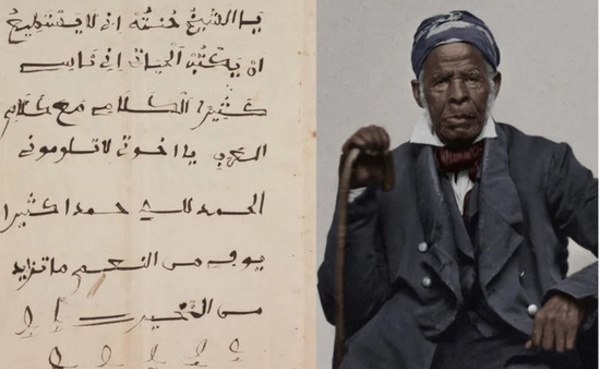 يا الشيخ حنته اني لا يستطيع
ان يكتب الحياتي اني ناس
كثيرا الكلامي مع كلام
يا اخوتي لا تلوموني
الحمد لله حمدا كثيرا
يوفي من النعم ما تزيد
من الخيرت